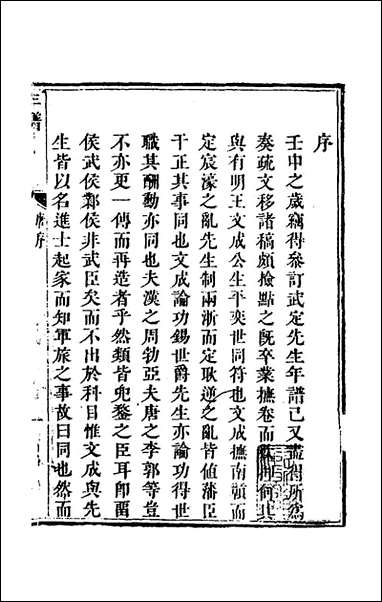 序
壬申之歲竊得參訂武定先生年譜已又盡得所爲
奏疏文移諸稿頗撿點之旣卒業撫卷而
與有明王文成公生平奕世同符也文成撫南頑而
定宸濠之亂先生制兩浙而定耿逆之亂皆値藩臣
干正其事同也文成論功錫世爵先生亦論功得世
職其酬勳亦同也夫漢之周勃亞夫唐之李郭等豈
不亦更一傳而再造者乎然類皆兜鍪之臣耳卽畱
侯武侯鄴侯非武臣矣而不出於科目惟文成與先
生皆以名進士起家而知軍旅之事故曰同也然而